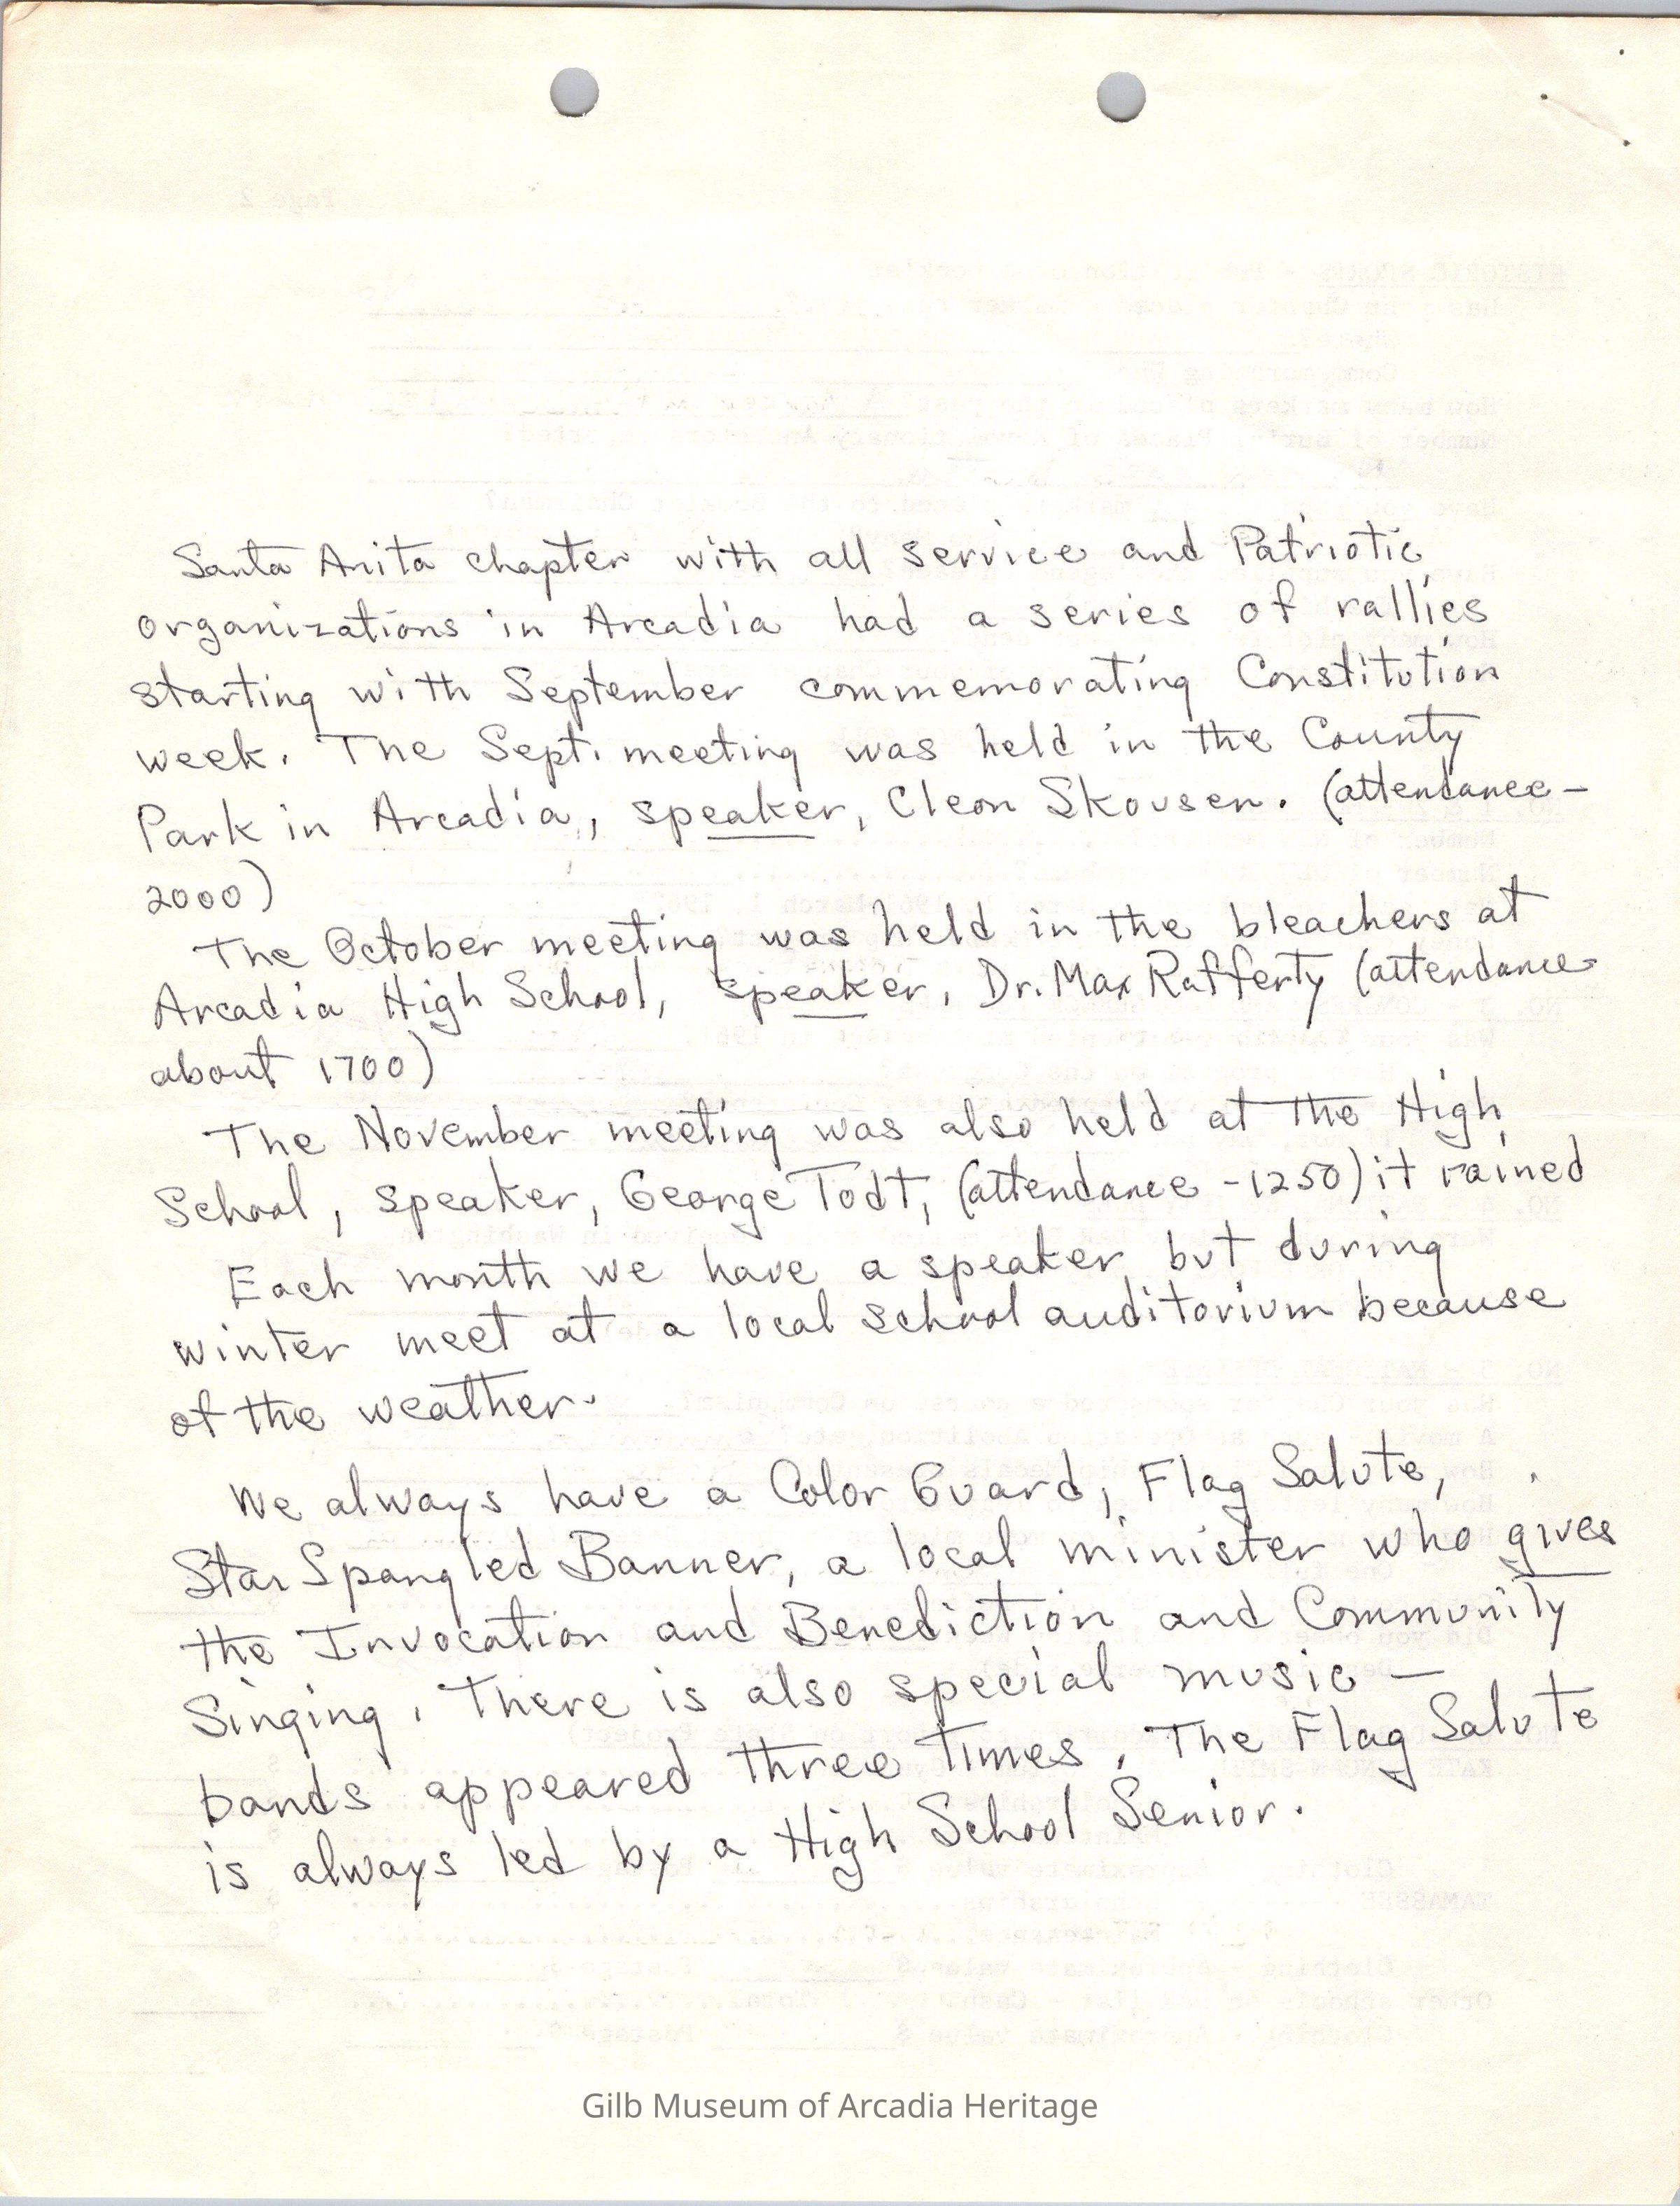 Santa Anita chapter with all service and Patriotic
organizations in Arcadia had a series of rallies
starting with September commemorating Constitution
week. The Sept. meeting was held in the County
Park in Arcadia, speaker, Cleon Skousen. (attendance-
2000)
The October meeting was held in the bleachers at
Arcadia High School, speaker, Dr. Max Rafferty (attendance
about 1700)
The November meeting was also held at the High
School, speaker, George Todt, (attendance -1250) it rained
Each month we have a speaker but during
winter meet at a local school auditorium because
of the weather.
We always have a Color Guard, Flag Salute,
Star Spangled Banner, a local minister who gives
the Invocation and Benediction and Community
Singing. There is also special music —
bands appeared three times. The Flag Salute
is always led by a High School Senior.
Gilb Museum of Arcadia Heritage